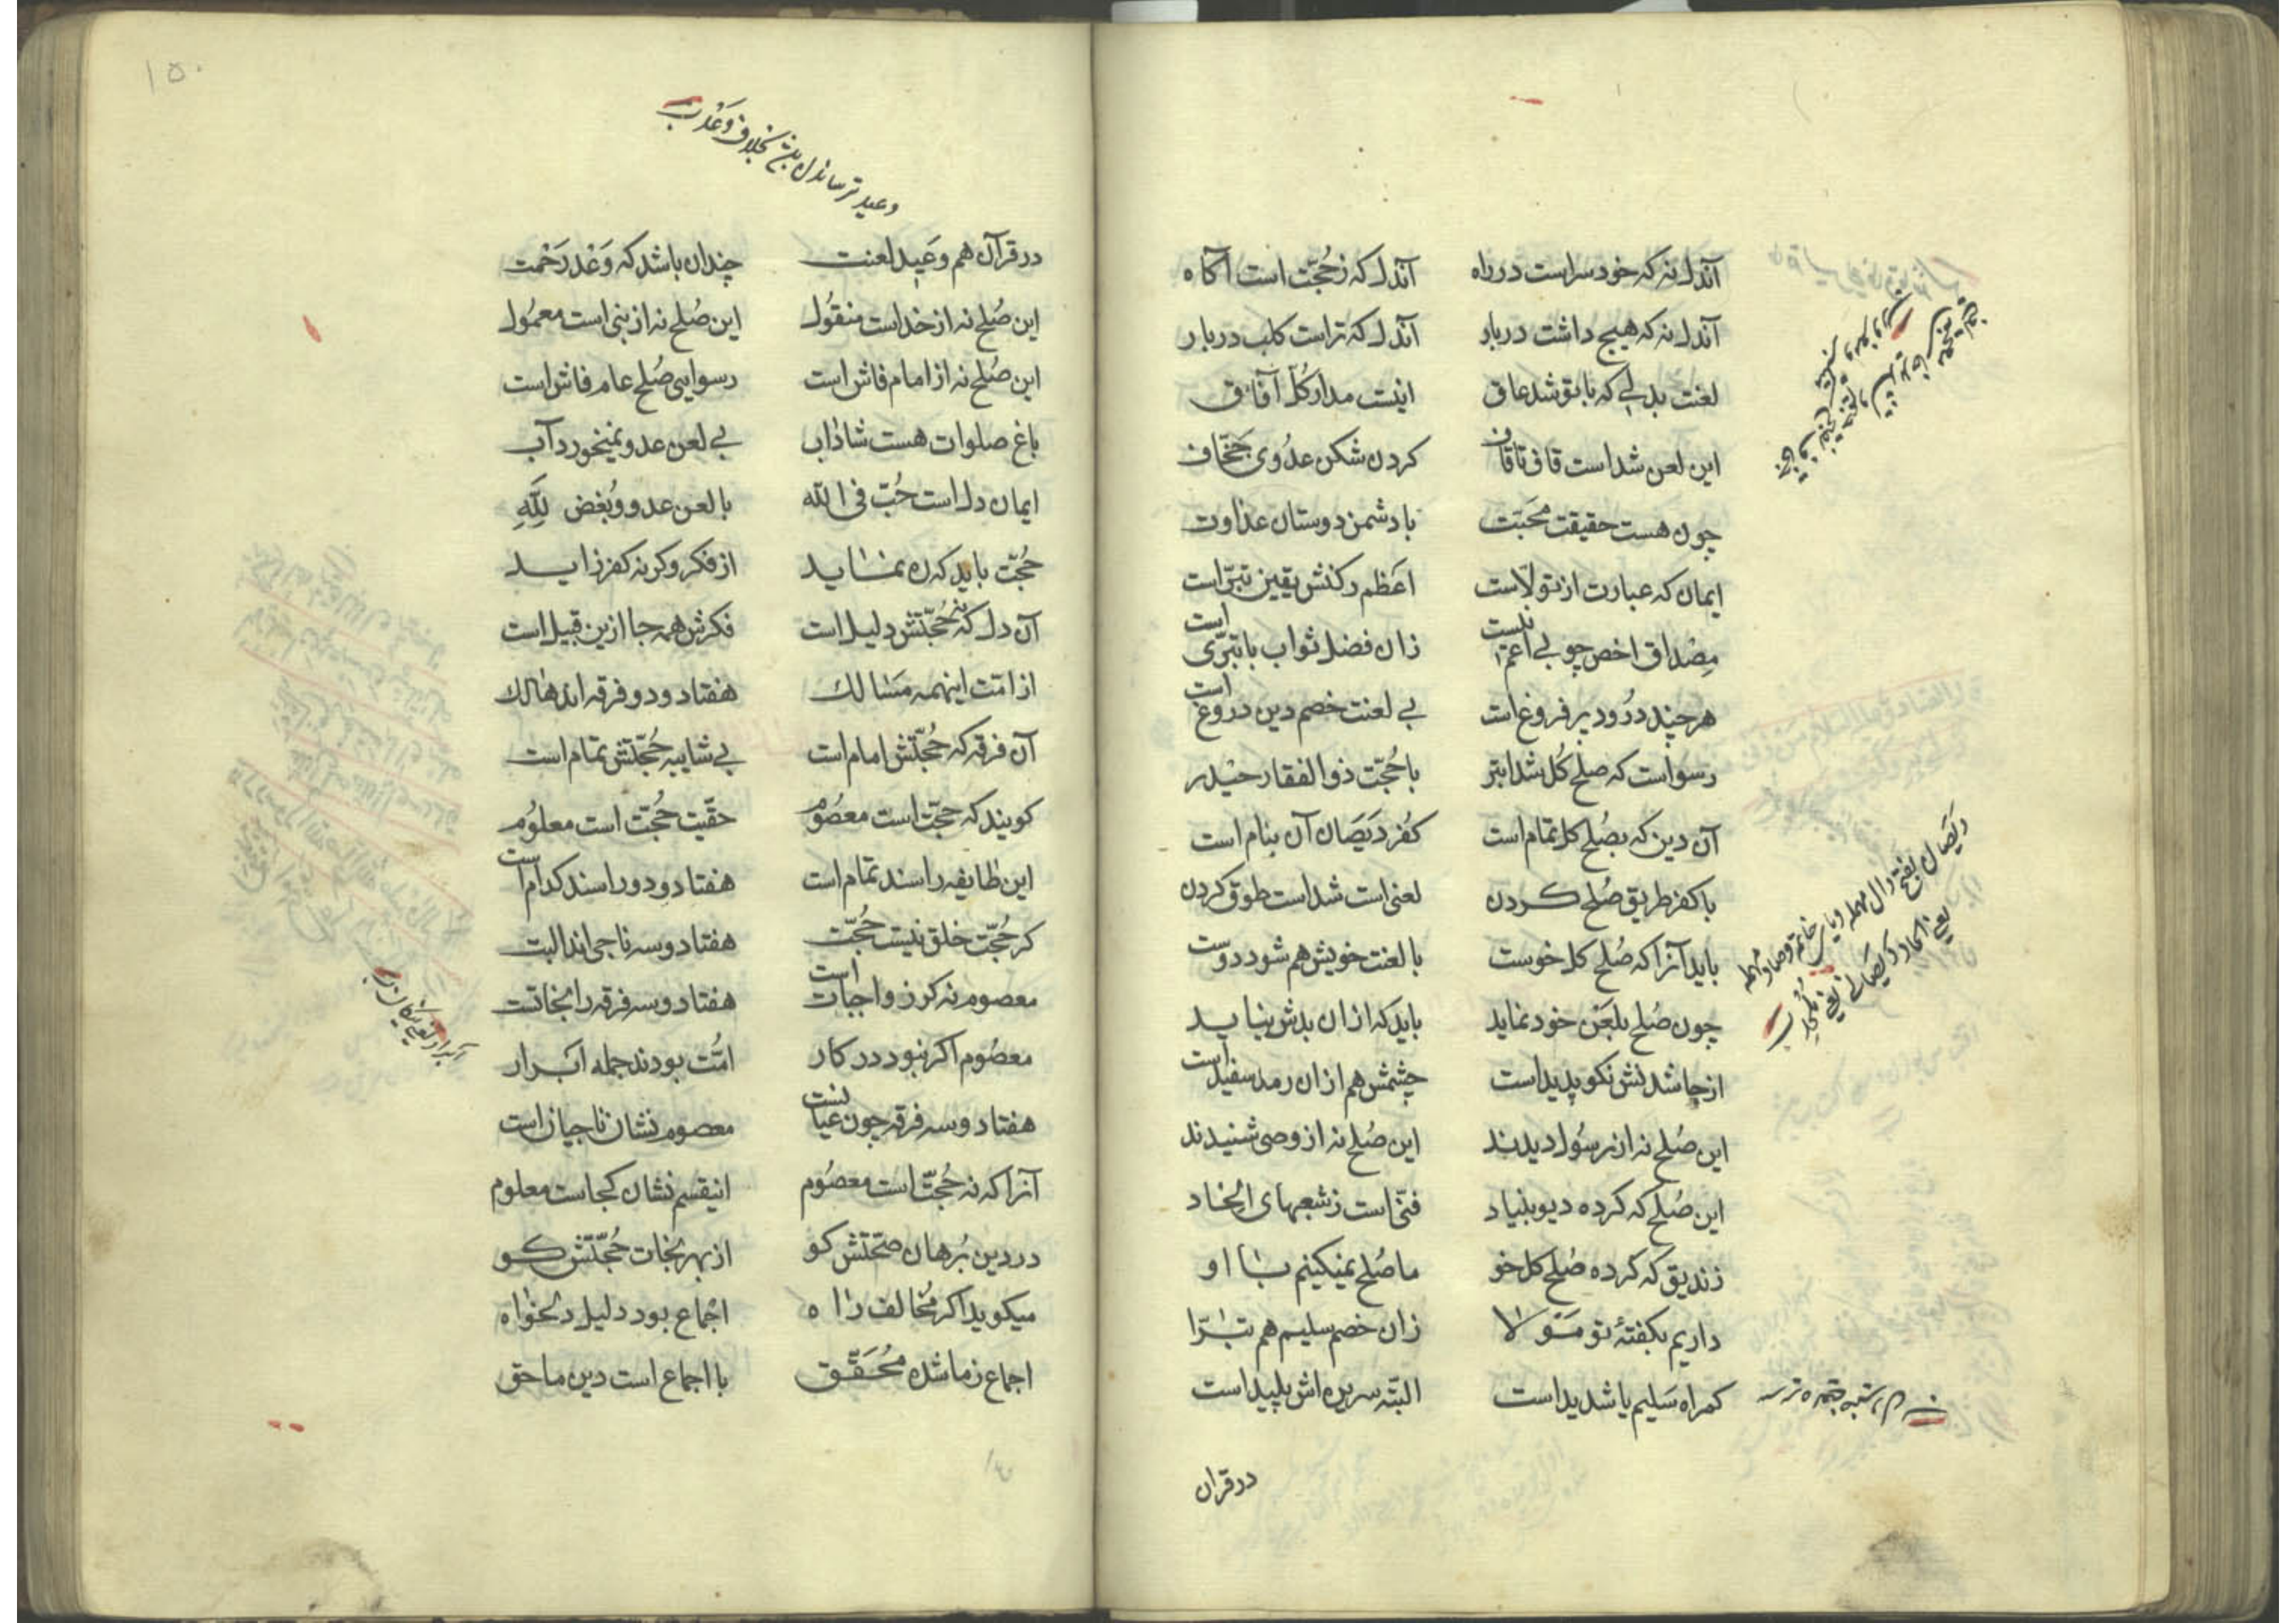 آندل نه که خود سراست در راه آندل که ز حُجّت است آکاه
آندل نه که هیچ داشت دربار آندل که تراست کلب دربار
لعنت بدلی که باتو شد عاق اینست مدار کُل آفاق
این لعن شداست قاف تا قاف کردن شکن عدُوی جخّاف
چون هست حقیقت محَبّت با دشمن دوستان عداوت
ایمان که عبارت از تولّاست اعَظم رکنش یقین تبرّاست
مِصْداق اخص چو بی اعم نیست زان فضل ثواب با تبرّی است
هرچند درُود پر فروغ است بی لعنت خصم دین دروغ است
رسواست که صلح کُل شد ابتر با حُجّت ذوالفقار حیْدر
آن دین که بصُلح کل تمام است کُفر دَیَصَان آن بنام است
با کفر طریق صُلح کردن لعنی است شداست طوق کردن
باید آنرا که صُلح کل خوست با لعنت خویش هم شود دوست
چون صُلح بلعَن خود نماید باید که ازان بدش نیاید
از جا شدنش نکو پدید است چشمش هم ازان رمد سفید است
این صُلح نه از رسُول دیدند این صُلح نه از وصی شنیدند
این صُلح که کرده دیو بنیاد فنّی است ز شعبهای الحاد
زندیق که کرده صُلح کل خو ما صُلح نمیکنیم با او
داریم بکفتهٔ تو مَتولا زان خصم سلیم هم تبرّا
کمراه سَلیم یا شدید است البتّه سریره‌اش پلید است
دیَصان بفتح دال مهمله و یای خاتم و صاد مهمله
یعنی الحاد و دیَصانی یعنی مُلحِد
در قران
۱۵۰
وعید ترسانیدن بخلاف وَعْد
در قرآن هم وعَید لعنت چندان باشد که وَعْد رَحْمت
این صُلح نه از خداست منقُول این صُلح نه از نبی است معمُول
این صُلح نه از امام فاش است رسوایی صُلح عام فاش است
باغ صلوات هست شاداب بی لعن عدو نمیخورد آب
ایمان دل است حُبّ فی الله با لعن عدو و بُغض لِلّهِ
حُجّت باید که ره نماید از فکر وکرنه کفر زاید
آن دل که نه حُجّتش دلیل است فکرش همه جا ازین قبیل است
از امّت اینهمه مَسالك هفتاد و دو فرقه‌اند هالك
آن فرقه که حُجّتش امام است بی شایبه حُجّتش تمام است
کویند که حجّت است معصُوم حقّیت حُجّت است معلوُم
این طایفه را سند تمام است هفتاد و دو را سند کدام است
کر حُجّت خلق نیست حُجّت هفتاد و سه ناجی‌اند البت
معصوم نه کر ز واجبات است هفتاد و سه فرقه را نجاتست
معصُوم اکر نبود در کار امّت بودند جمله ابَرار
هفتاد و سه فرقه چون عیانست معصوم نشان ناجیان است
آنرا که نه حُجّت است معصُوم اینقسم نشان کجاست معلوم
در دین بُرهان صحّتش کو از بهر نجات حُجّتش کو
میکوید اکر مُخالف راه اجْماع بود دلیل دلخواه
اجماع ز ما شده مُحَقّق با اجماع است دین ما حق
ابرار یعنی نیکان